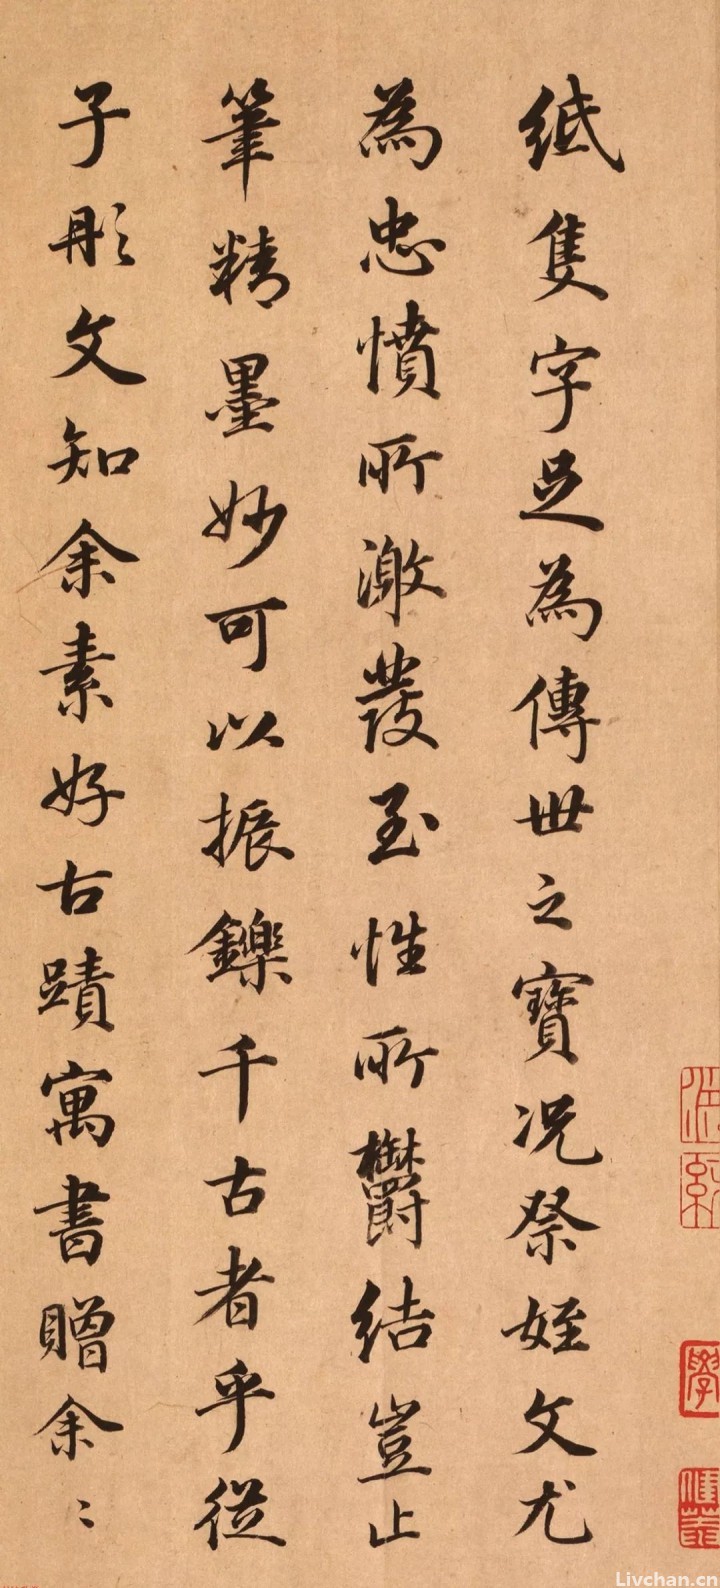 紙隻字足為傳世之寶況祭姪文尤
為忠憤所激發至性所鬱結豈止
筆精墨妙可以振鑠千古者乎從
子彤文知余素好古蹟寓書贈余〻
Livchan.cn